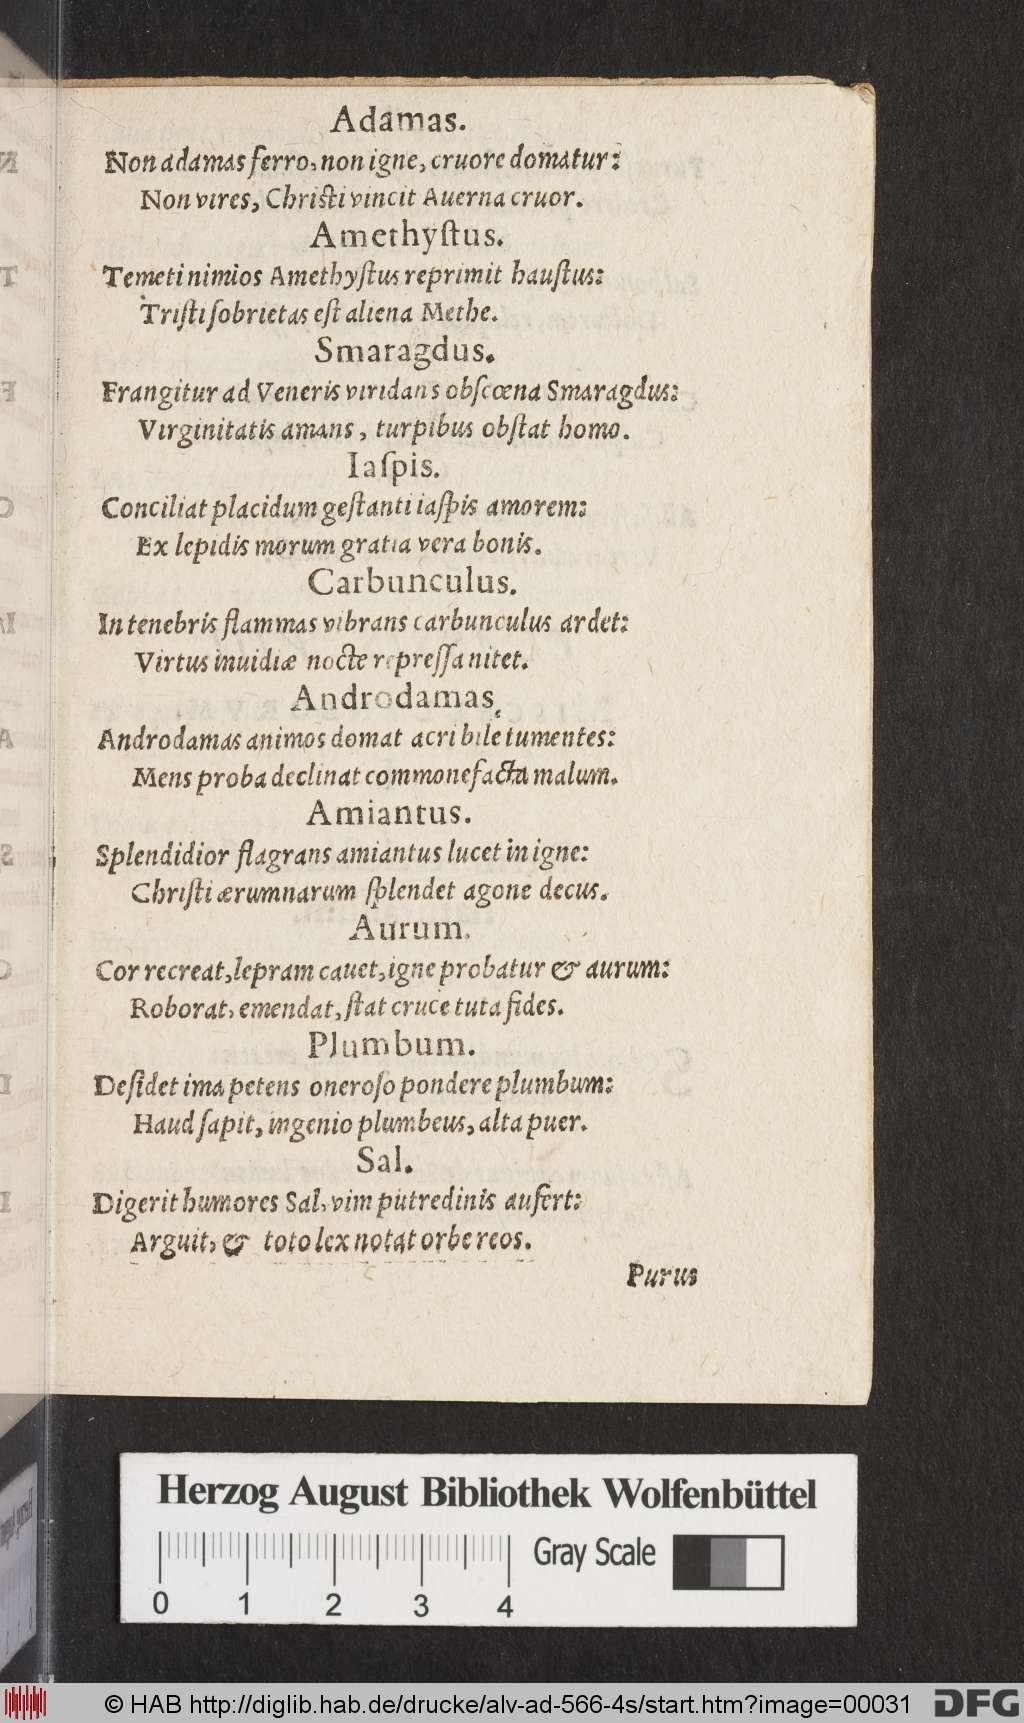 Adamas.
Non adamas ferro, non igne, cruore domatur:
Non vires, Christi vincit Auerna cruor.
Amethyſtus.
Temeti nimios Amethyſtus reprimit hauſtus:
Triſti ſobrietas eſt aliena Methe.
Smaragdus.
Frangitur ad Veneris viridans obſcœna Smaragdus:
Virginitatis amans, turpibus obſtat homo.
Iaſpis.
Conciliat placidum geſtanti iaſpis amorem:
Ex lepidis morum gratia vera bonis.
Carbunculus.
In tenebris flammas vibrans carbunculus ardet:
Virtus inuidiæ nocte repreſſa nitet.
Androdamas.
Androdamas animos domat acri bile tumentes:
Mens proba declinat commonefacta malum.
Amiantus.
Splendidior flagrans amiantus lucet in igne:
Chriſti ærumnarum ſplendet agone decus.
Aurum.
Cor recreat, lepram cauet, igne probatur & aurum:
Roborat, emendat, ſtat cruce tuta fides.
Plumbum.
Deſidet ima petens oneroſo pondere plumbum:
Haud ſapit, ingenio plumbeus, alta puer.
Sal.
Digerit humores Sal, vim putredinis aufert:
Arguit, & toto lex notat orbe reos.
Purus
Herzog August Bibliothek Wolfenbüttel
Gray Scale
0 1 2 3 4
© HAB http://diglib.hab.de/drucke/alv-ad-566-4s/start.htm?image=00031
DFG